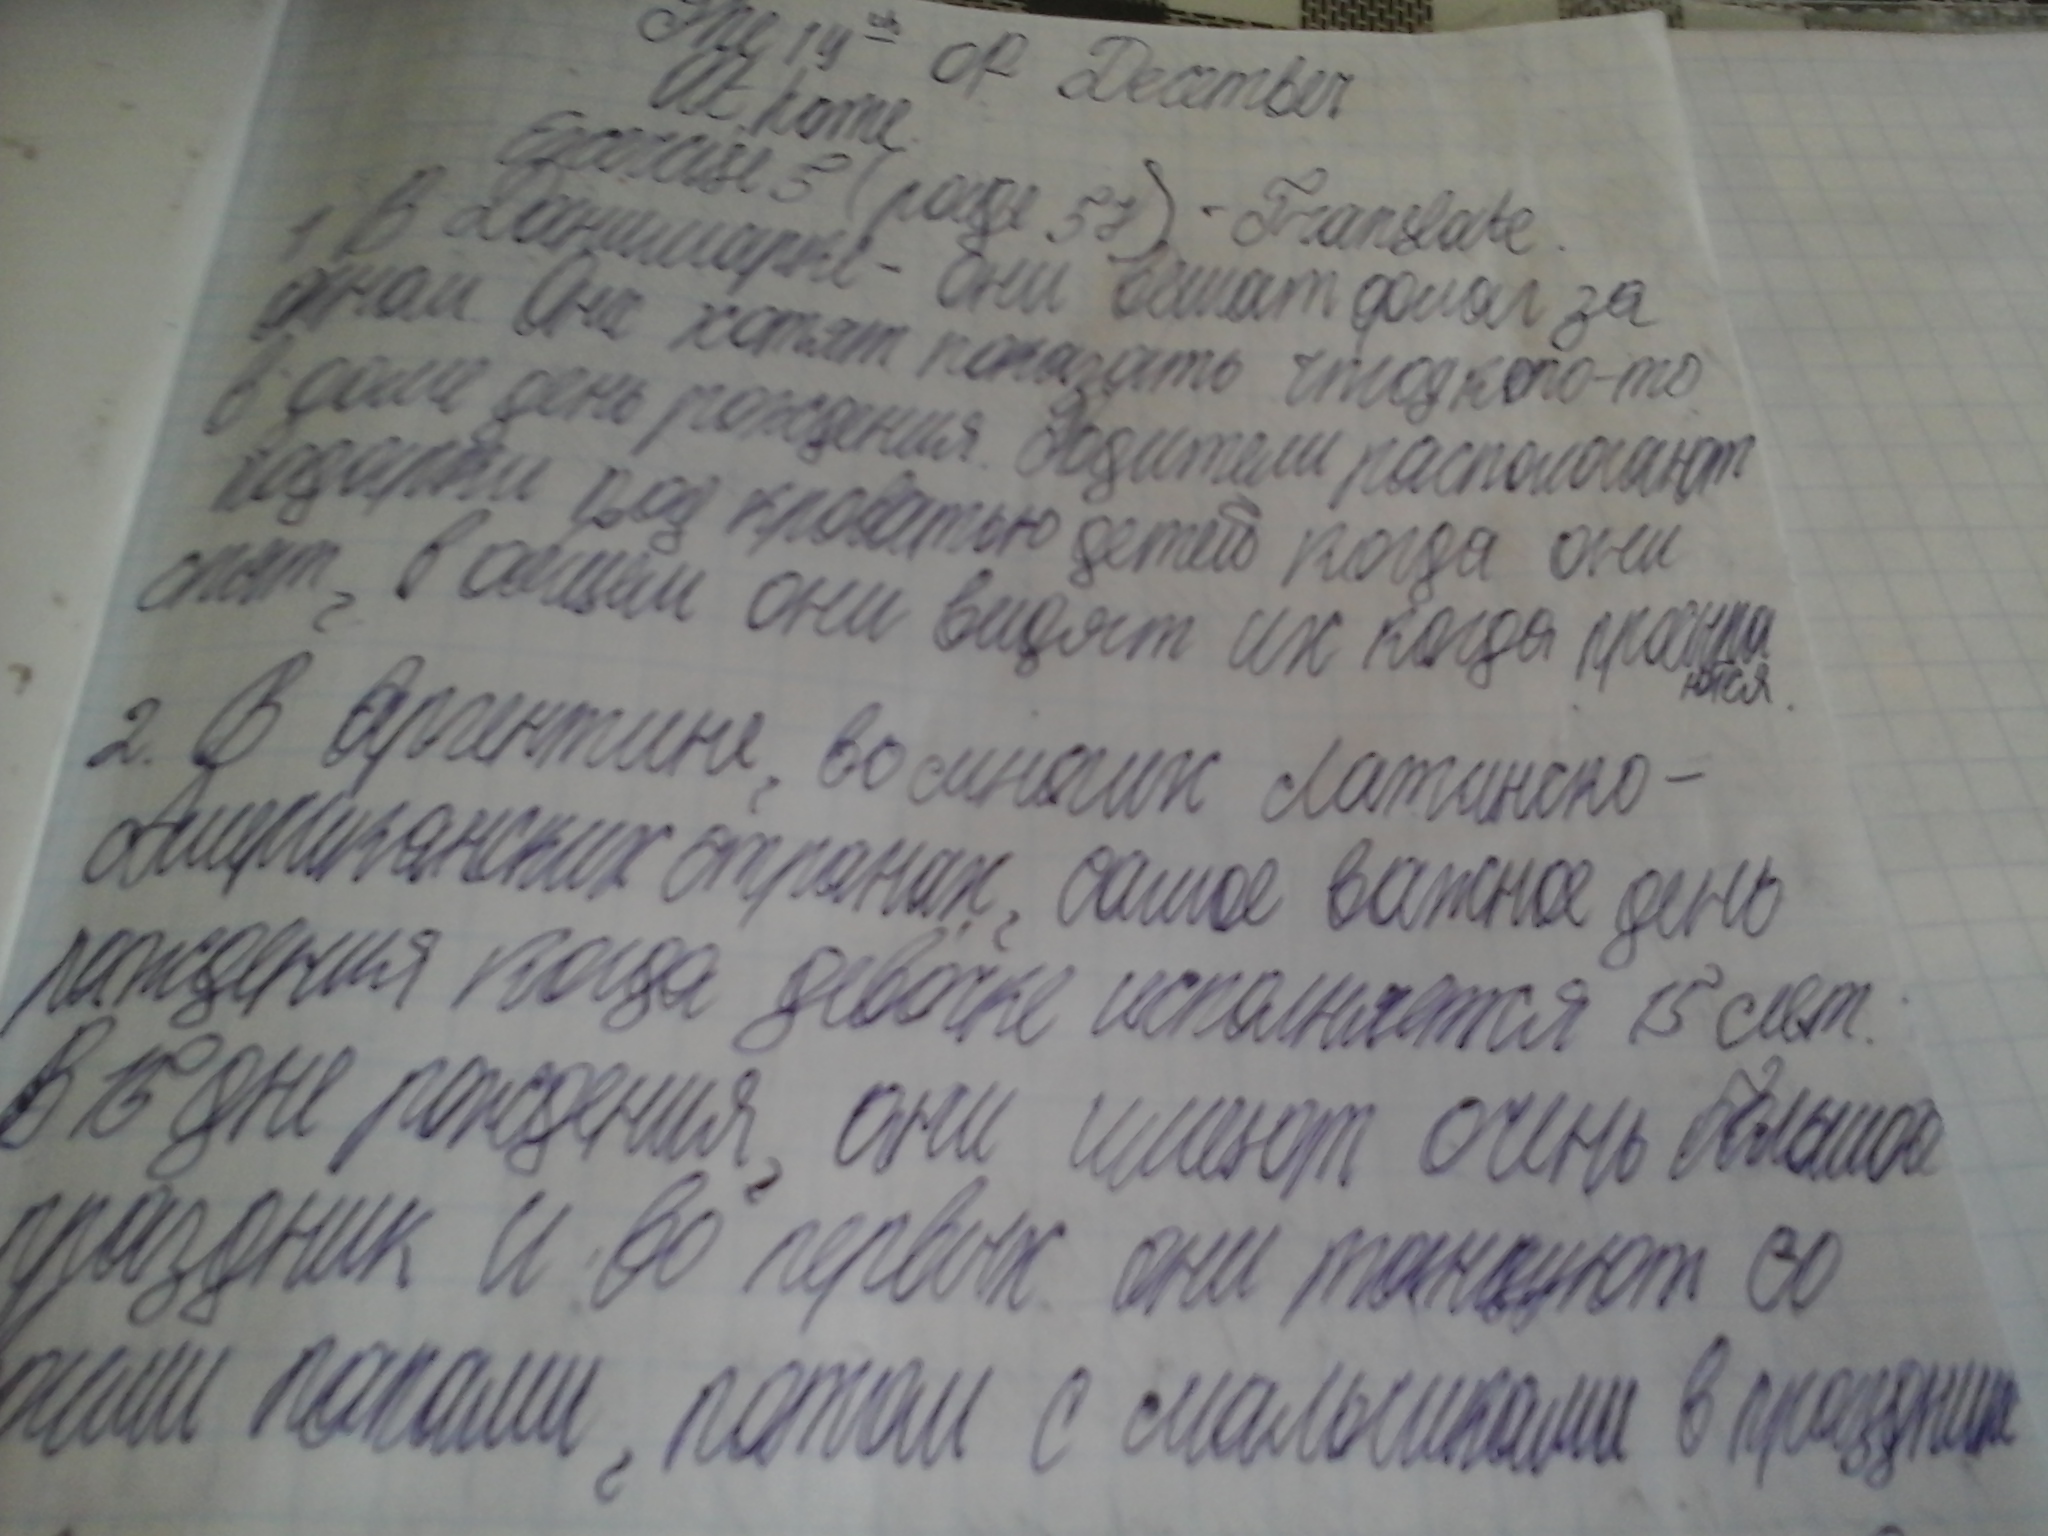 The 14th of December
At home.
Exercise 5 (page 57) - Translate.
1 В Данимарке - они вешат за
окном Они хотят показать что у кого-то
в доме день рождения. Родители распологают
подарки под кроватью детей когда они
спят, в общем они видят их когда просыпаются.
2. В Аргентине, во многих латинско-
Американских странах, самое важное день
рождения когда девочке исполняется 15 лет.
В 15 дне рождения, они имеют очень большой
праздник и во первых они танцуют со
папами, потом с мальчиками в праздник